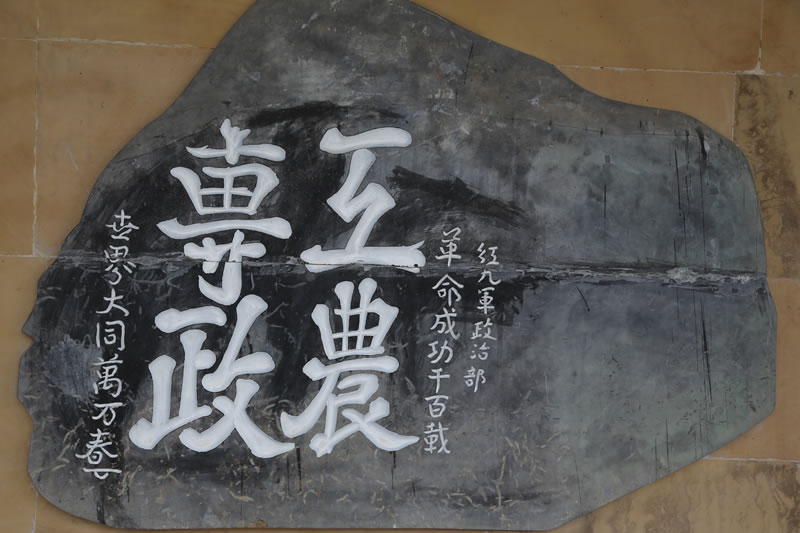 紅九軍政治部
革命成功千百載
工農
專政
世界大同萬万春